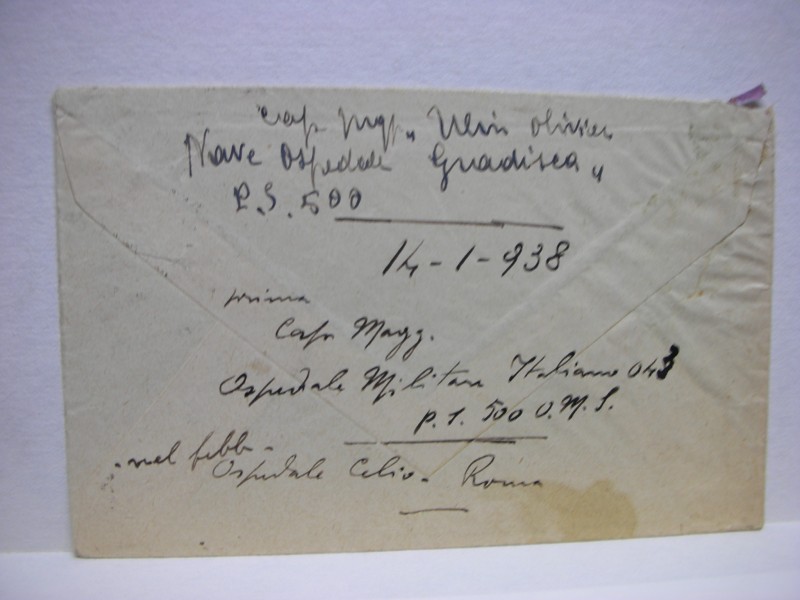 Cap. Magg. Ulvis Olivier
Nave Ospedale Gradisca "
P.S. 500
14 - 1 - 938
prima
Cap Magg.
Ospedale Militare Italiano 043
P.S. 500 O.M.S.
nel febb.
Ospedale Celio - Roma